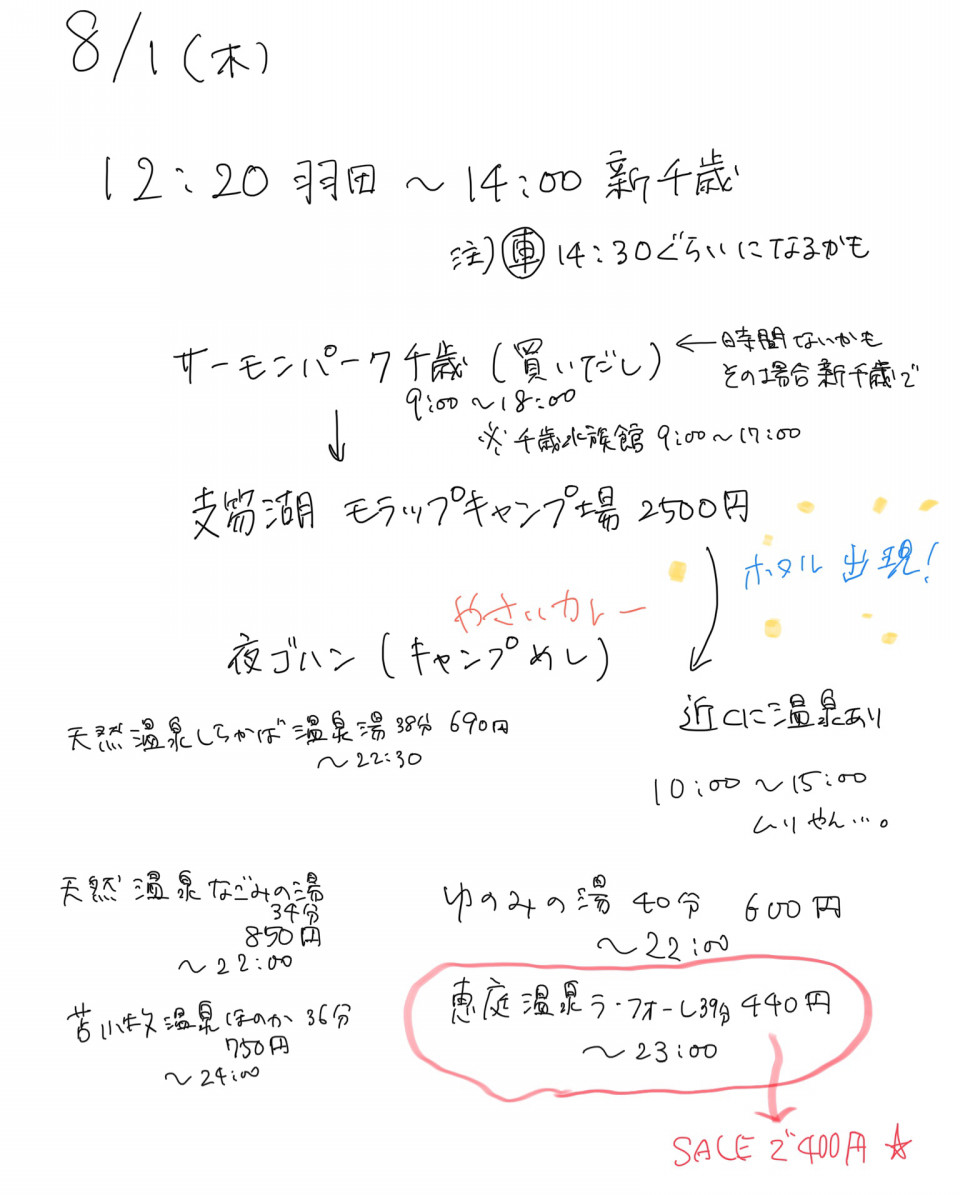 8/1(木)
12:20 羽田 〜 14:00 新千歳
注)車 14:30ぐらいになるかも
サーモンパーク千歳(買いだし)
←時間ないかも
その場合新千歳で
9:00〜18:00
※千歳水族館 9:00〜17:00
↓
支笏湖 モラップキャンプ場 2500円
ホタル出現!
やさいカレー
夜ゴハン(キャンプめし)
近くに温泉あり
10:00〜15:00
ムリやん…。
天然温泉しらかば温泉湯 38分 690円
〜22:30
天然温泉なごみの湯
34分
850円
〜22:00
ゆのみの湯 40分 600円
〜22:00
苫小牧温泉ほのか 36分
750円
〜24:00
恵庭温泉ラ・フォーレ39分 440円
〜23:00
SALEで400円☆